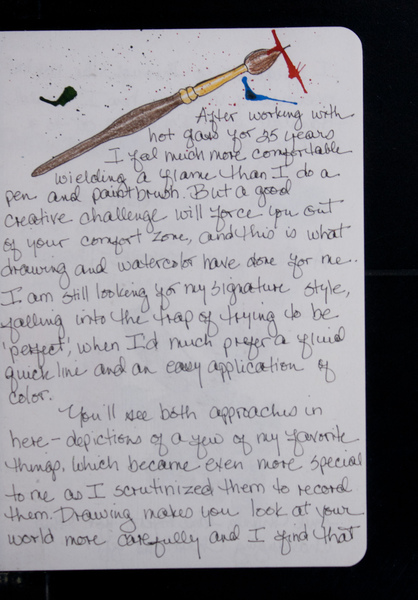 After working with
hot glass for 35 years
I feel much more comfortable
wielding a flame than I do a
pen and paintbrush. But a good
creative challenge will force you out
of your comfort zone, and this is what
drawing and watercolor have done for me..
I am still looking for my signature style,
falling into the trap of trying to be
'perfect', when I'd much prefer a fluid
quick line and an easy application of
color.
You'll see both approaches in
here - depictions of a few of my favorite
things, which became even more special
to me as I scrutinized them to record
them. Drawing makes you look at your
world more carefully and I find that